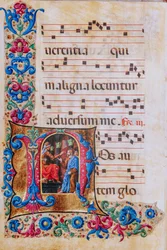 uerentia qui
maligna locuntur
aduersum me.
Os au
tem glo